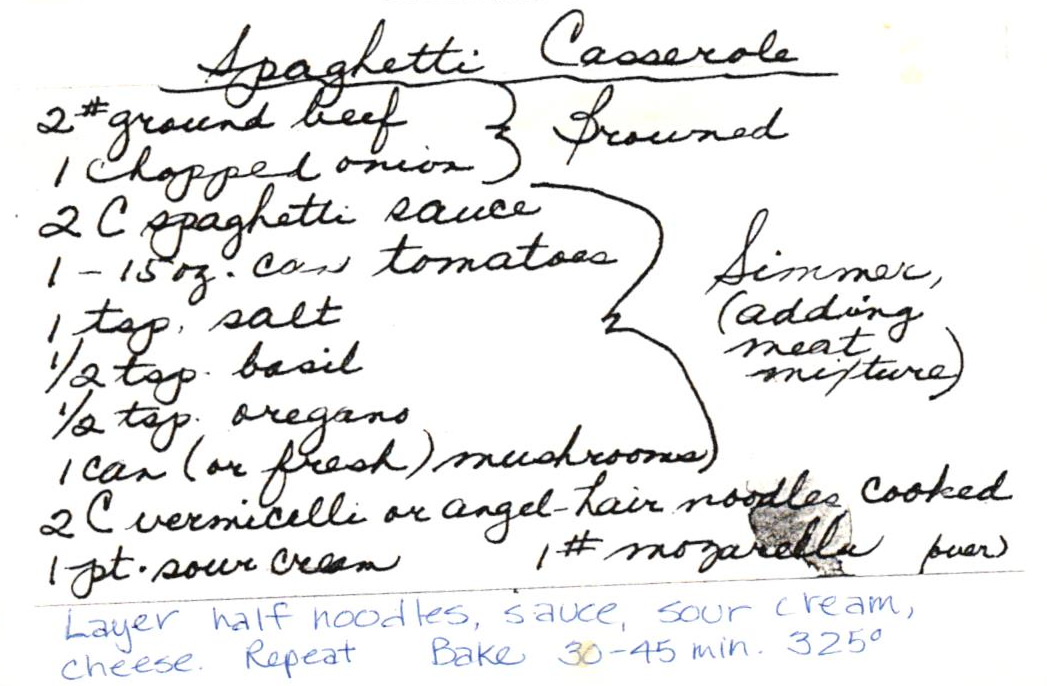 Spaghetti Casserole
2# ground beef } Browned
1 Chopped onion
2 C spaghetti sauce
1 - 15 oz. can tomatoes
1 tsp. salt
1/2 tsp. basil
1/2 tsp. oregano
1 can (or fresh) mushrooms
Simmer,
(adding
meat
mixture)
2 C vermicelli or angel-hair noodles cooked
1 pt. sour cream 1# mozarella (over)
Layer half noodles, sauce, sour cream,
cheese. Repeat Bake 30-45 min. 325°